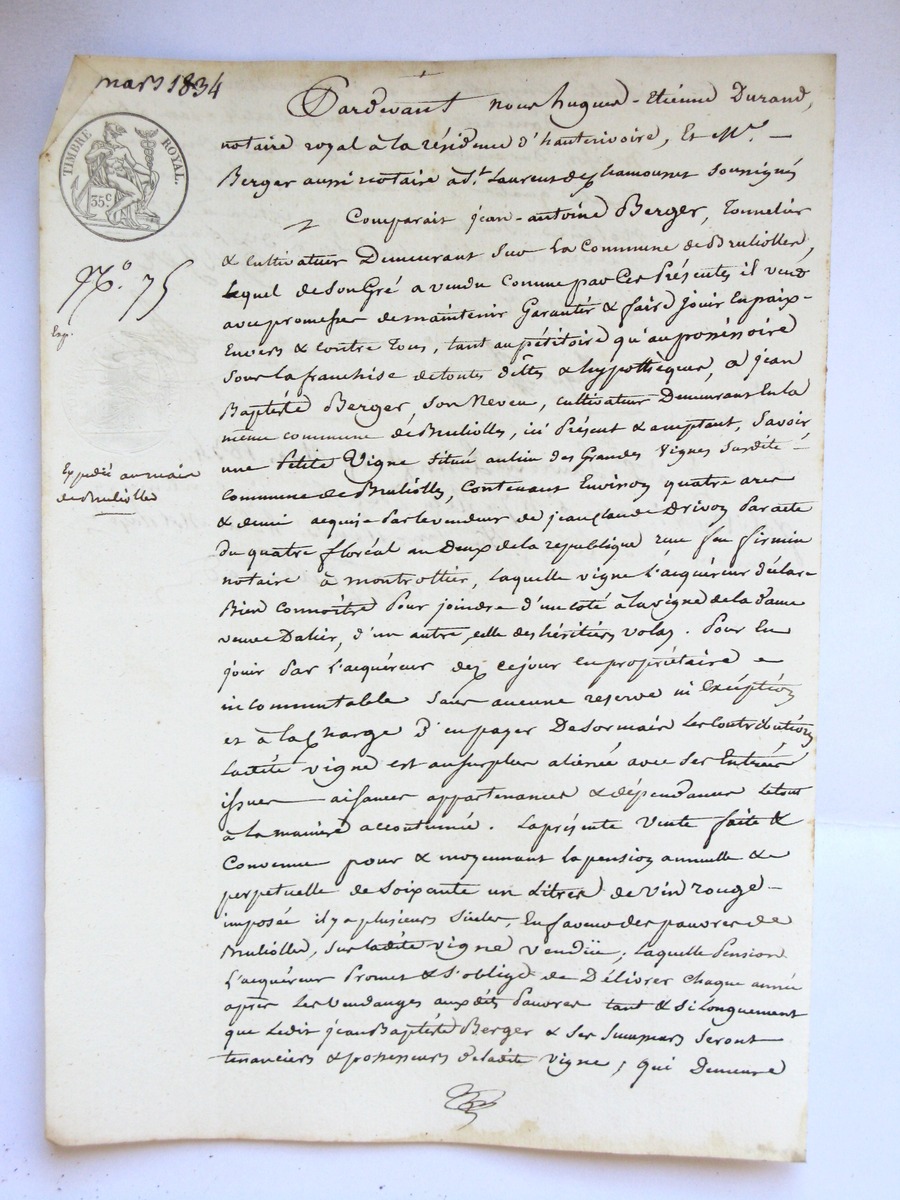 mars 1834
TIMBRE ROYAL.
35 c
N.º 75
Exp.
Expédié au maire
de Brullioles
Pardevant nous hugues-Etienne Durand,
notaire royal à la résidence d'hauterivoire, Et Me.
Berger aussi notaire à St. Laurent de chamousset soussignés
Comparait jean-antoine Berger, Tonnelier
& cultivateur Demeurant sur la Commune de Brullioles,
Lequel de son Gré a vendu comme par Ces Présentes il vend
avec promesse de maintenir Garantir & faire jouir En paix
Envers & contre Tous, tant au pétitoire qu'au possessoire
sous la franchise de toutes dettes & hypothèques, à jean
Baptiste Berger, son Neveu, cultivateur Demeurant En la
même commune de Brullioles, ici Présent & acceptant, savoir
une Petite Vigne située au lieu des Grandes Vignes susdite
commune de Brullioles, Contenant Environ quatre ares
& demi acquise Par le vendeur de jean claude Drivon Par acte
du quatre floréal an Deux de la republique reçu feu firmin
notaire à montrottier, Laquelle vigne L'acquéreur déclare
Bien connoitre Pour joindre d'une coté à la vigne de la dame
veuve Dalier, d'un autre, celle des héritiers volay. Pour En
jouir Par L'acquéreur dez ce jour en propriétaire
incommutable sans aucune reserve ni Exception
et à la charge d'en payer Desormais Les Contributions
Ladite vigne est au surplus alienée avec ses Entrées
issues aisances appartenances & dépendances Letout
à la manière accoutumée. La présente Vente faite &
Convenue pour & moyennant la pension annuelle &
perpetuelle de soixante un Litres de vin rouge
imposée il y a plusieurs siècles, En faveur des pauvres de
Brullioles, sur ladite vigne vendüe, Laquelle Pension
L'acquéreur Promet & s'oblige de Délivrer chaque année
après Les vendanges auxdits Pauvres tant & si Longuement
que Ledit jean Baptiste Berger & ses successeurs seront
tenanciers & possesseurs de ladite vigne, qui Demeure